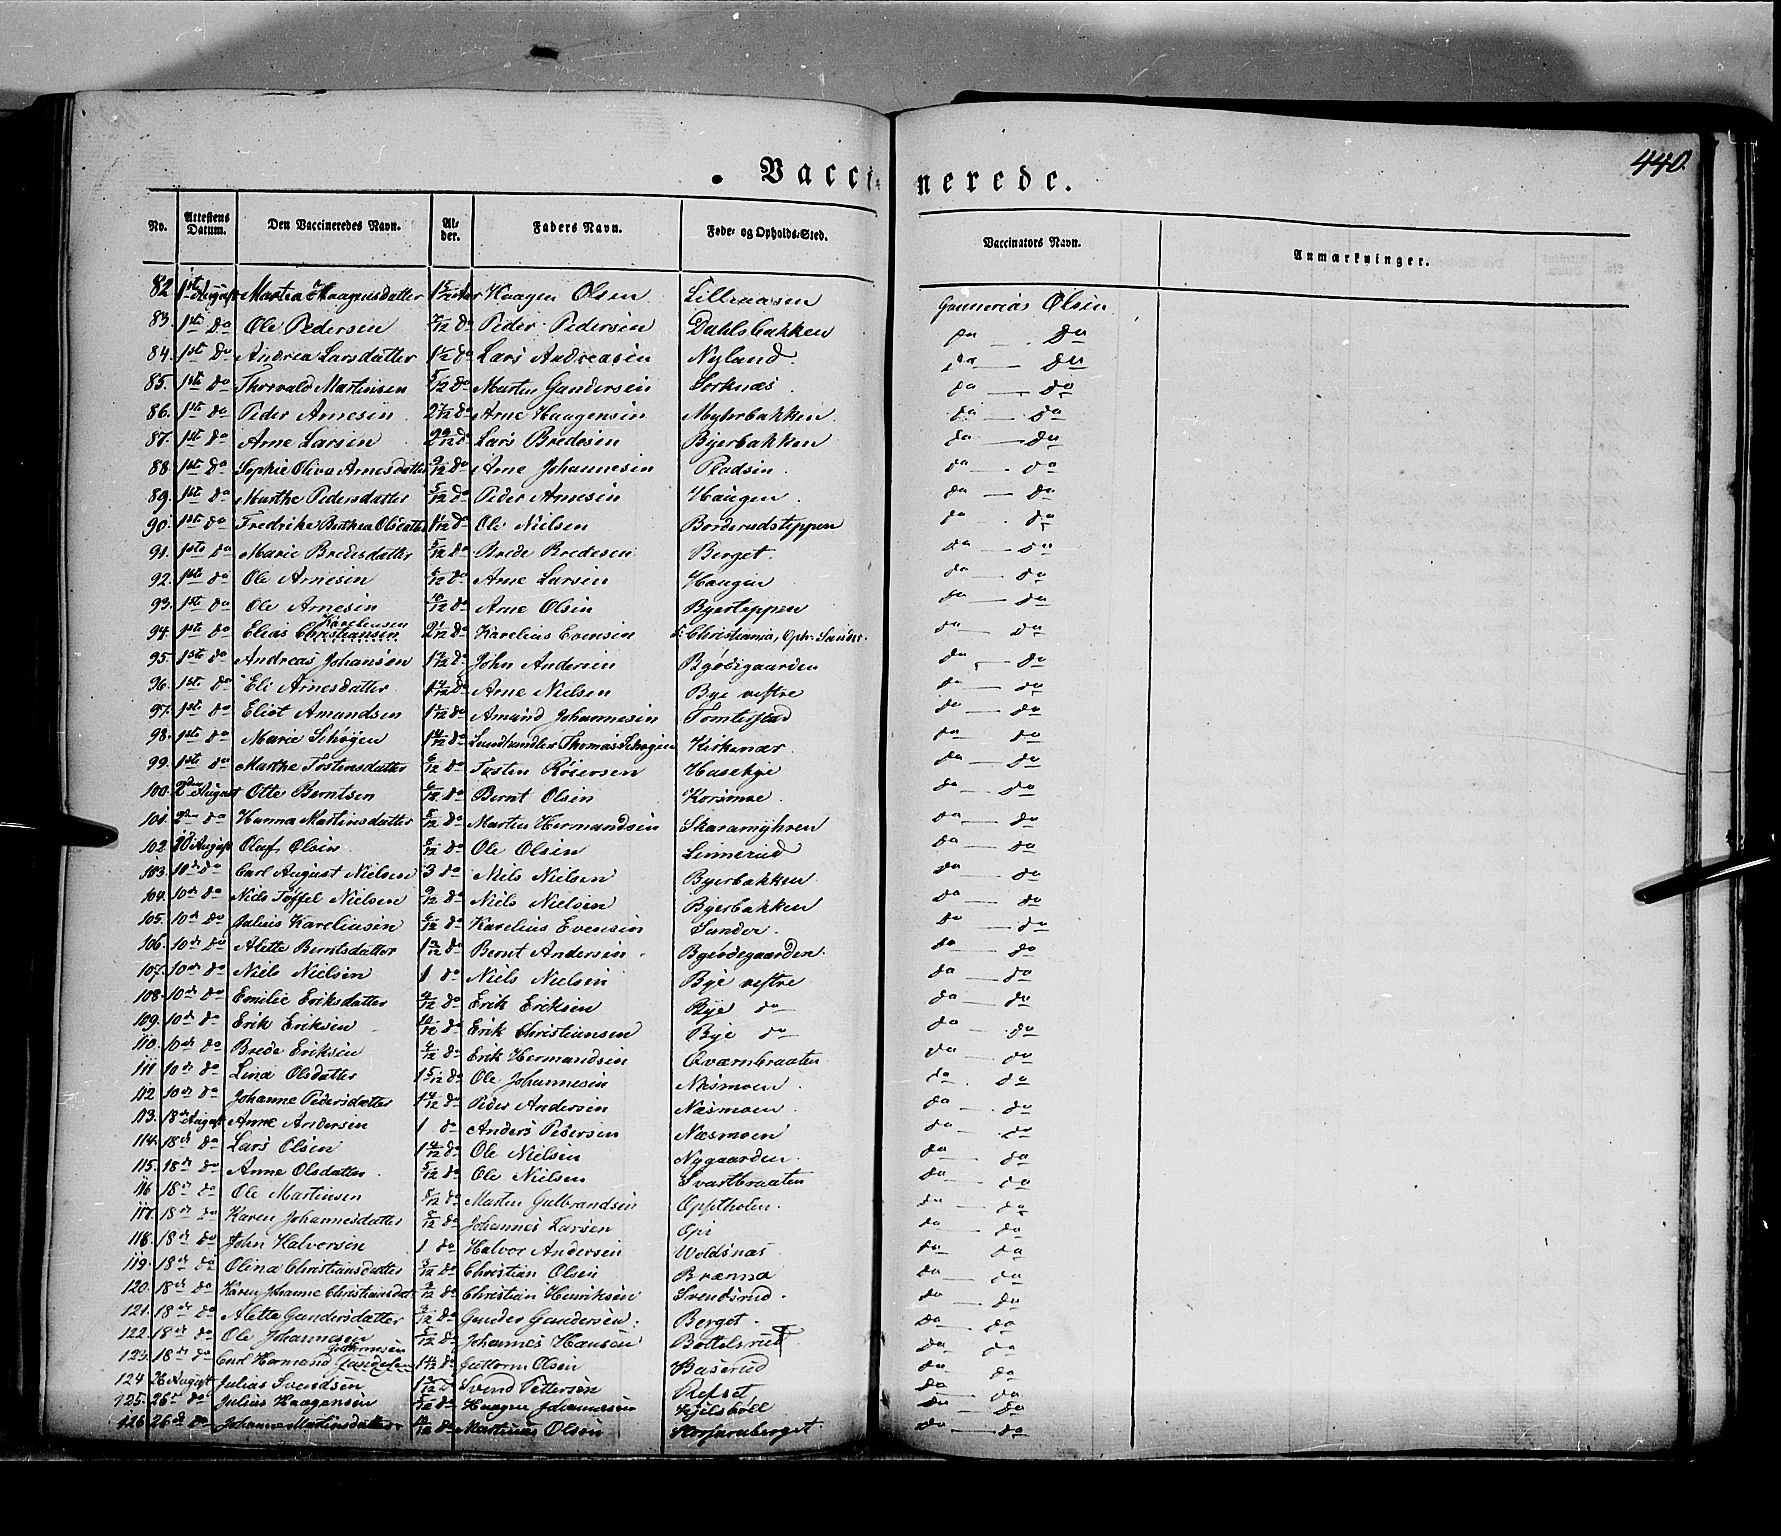 440.
Vaccinerede.
No. Attestens Datum. Den Vaccineredes Navn. Alder. Faders Navn. Føde- og Opholds-Sted. Vaccinators Navn. Anmærkninger.
82 1st August Martea Haagensdatter Haagen Olsen Lilleaasen Olsen
83. 1ste do Ole Pedersen 7/12 do Peder Pedersen Dahlsbakken do — do
84. 1ste do Andrea Larsdatter do Lars Andreasen Nyland do — do
85. 1ste do Thorvald Martinsen 5/12 do Martin Gundersen Sorknæs do — do
86. 1ste do Peder Arnesen 2 7/12 do Arne Haagensen Myhrbakken do — do
87. 1ste do Arne Larsen do Lars Bredesen Byerbakken do — do
88. 1ste do Sophie Oliva Arnesdatter 9/12 do Arne Johannesen do — do
89. 1ste do Marthe Pedersdatter 5/12 do Peder Arnesen Haugen do — do
90. 1ste do Fredrike Berthea Olsdatter do Ole Nielsen Borderudsteppen do — do
91. 1ste do Marie Bredesdatter 5/12 do Brede Bredesen Berget do — do
92. 1ste do Ole Arnesen do Arne Larsen Haugen do — do
93. 1ste do Ole Arnesen 10/12 do Arne Olsen Byerteppen do — do
94. 1ste do Elias Christiansen Kareliusen do Karelius Evensen f: Christiania, Oph: Sander. do — do
95. 1ste do Andreas Johansen do John Andersen Bye vestre do — do
96. 1ste do Eli Arnesdatter do Arne Nielsen Bye vestre do — do
97. 1ste do Eliot Amundsen do Amund Johannesen Tomterstad do — do
98. 1ste do Marie Schøyen do Landhandler Thomas Schøyen Kirkenær do — do
99. 1ste do Marthe Tostensdatter do Tosten Husebye do — do
100. 2den August Otto Berntsen do Bernt Olsen Korsmoe. do — do
101. 2den do Hanna Martinsdatter do Martin Hermandsen Skaramyhren do — do
102. 10 August Olaf Olsen do Ole Olsen Linnerud do — do
103. 10de do Carl August Nielsen 3 do Niels Nielsen Byerbakken do — do
104. 10de do Niels Tøffel Nielsen 9/12 do Niels Nielsen Byerbakken do — do
105. 10de do Julius Kareliusen do Karelius Evensen Sander. do — do
106. 10de do Alette Berntsdatter do Bernt Andersen do — do
107. 10de do Niels Nielsen 1 do Niels Nielsen Bye vestre do — do
108. 10de do Emilie Eriksdatter do Erik Eriksen Bye do do — do
109. 10de do Erik Eriksen 10/12 do Erik Christiansen Bye do do — do
110. 10de do Brede Eriksen do Erik Hermandsen Qværnbraaten do — do
111 10de do Lina Olsdatter 1 5/12 do Ole Johannesen Næsmoen do — do
112 10de do Johanne Pedersdatter do Peder Andersen Næsmoen do — do
113. 18de August Arne Andersen 1 do Anders Pedersen Næsmoen do — do
114. 18de do Lars Olsen do Ole Nielsen Nygaarden do — do
115. 18de do Anne Olsdatter 5/12 do Ole Nielsen Svartbraaten do — do
116 18de do Ole Martinsen 8/12 do Martin Gulbrandsen Opsetholen do — do
117. 18de do Karen Johannesdatter do Johannes Larsen Opsi do — do
118. 18de do John Halvorsen 1 do Halvor Andersen Voldsnæs do — do
119. 18de do Olina Christiansdatter do Christian Olsen Brænna do — do
120. 18de do Karen Johanne Christiansdat do Christian Henriksen Svendsrud. do — do
121. 18de do Alette Gundersdatter do Gunder Gundersen. Berget. do — do
122. 18de do Ole Johannesen do Johannes Hansen Bottelsrud do — do
123. 18de do Carl Hermand Gundersen Guttormsen do Guttorm Olsen Baserud do — do
124 26 August Julius Svendsen do Svend Pettersen Refset do — do
125. 26de do Julius Haagensen do Haagen Johannesen Kjelshøll do — do
126 26de do Johanne Martinsdatter do Martinus Olsen Korsaraberget do — do